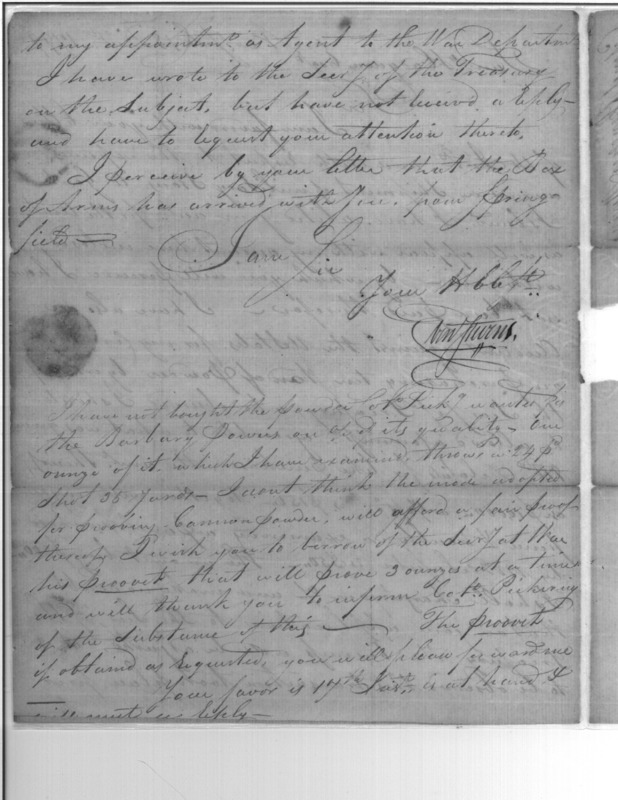 to my appointmt. as Agent to the War Departmt.
I have wrote to the Secry of the Treasury
on the Subject, but have not heard a reply—
and have to request your attention thereto,
I perceive by your letter that the Box
of Arms has arrived with You, from Spring
field—
I am Sir
Your Hbble St.
Ebenr Stevens.
I have not bought the powder Colo. Pick.g wanted for
the Barbary Powers on acct of its quality— One
ounze of it, which I have examined, throws a 24 pd
shot 35 Yards— I dont think the mode adopted
for prooving Cannon powder, will afford a fair proof
thereof, I wish you to borrow of the Secry at War
hisproovet that will prove 3 ounzes at a time
and will thank you to inform Colo. Pickering
of the Substance of this— The proovet
if obtained as requested, you will please forward me
Your favor is 17th Inst. is at hand &
reply—